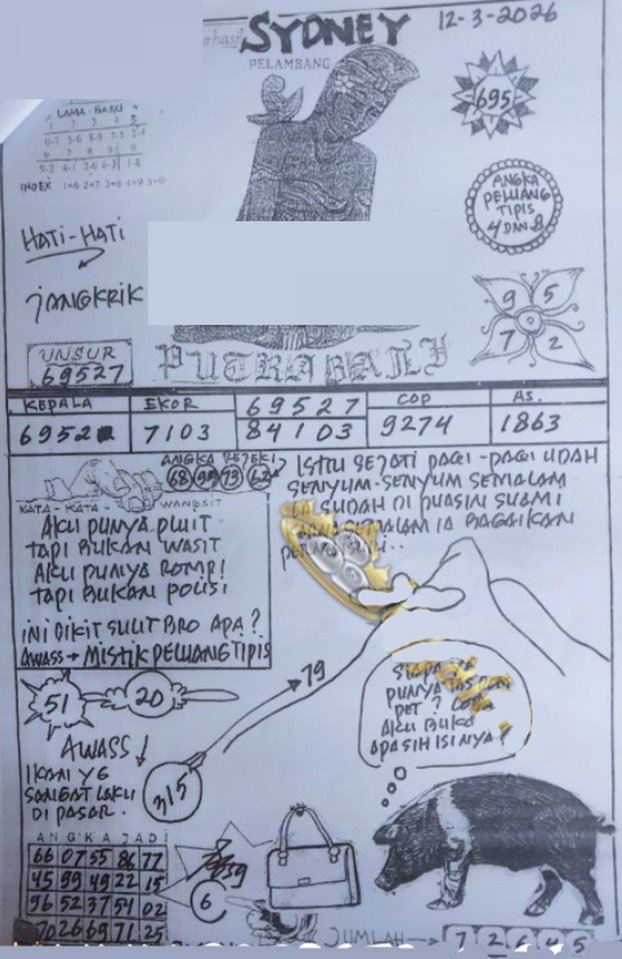 SYDNEY
12-3-2026
PELAMBANG
LAMA - BARU
695
ANGKA
PELUANG
TIPIS
4 DAN 8
HATI-HATI
JANGKRIK
9 5
7 2
UNSUR
69527
PUTRA BALI
KEPALA
EKOR
69527
COP
AS.
6952
7103
84103
9274
1863
ANGKA REJEKI
68 73 62
KATA - KATA - WANGSIT
AKU PUNYA PLUIT
TAPI BUKAN WASIT
AKU PUNYA ROMPI
TAPI BUKAN POLISI
INI DIKIT SULIT BRO APA?
AWASS → MISTIK PELUANG TIPIS
ISTRI SEJATI PAGI-PAGI UDAH
SENYUM-SENYUM SEMALAM
SUDAH DI PUASIN SUAMI
SEMALAM IA BAGAIKAN
51
20
79
AWASS!
IKAN YG
SANGAT LAKU
DI PASAR.
315
PUNYA
PET?
AKU BUKA
APA SIH ISINYA?
ANGKA JADI
66 07 55 86 77
45 99 49 22 15
96 52 37 54 02
70 26 69 71 25
39
6
JUMLAH → 7 2 6 4 5